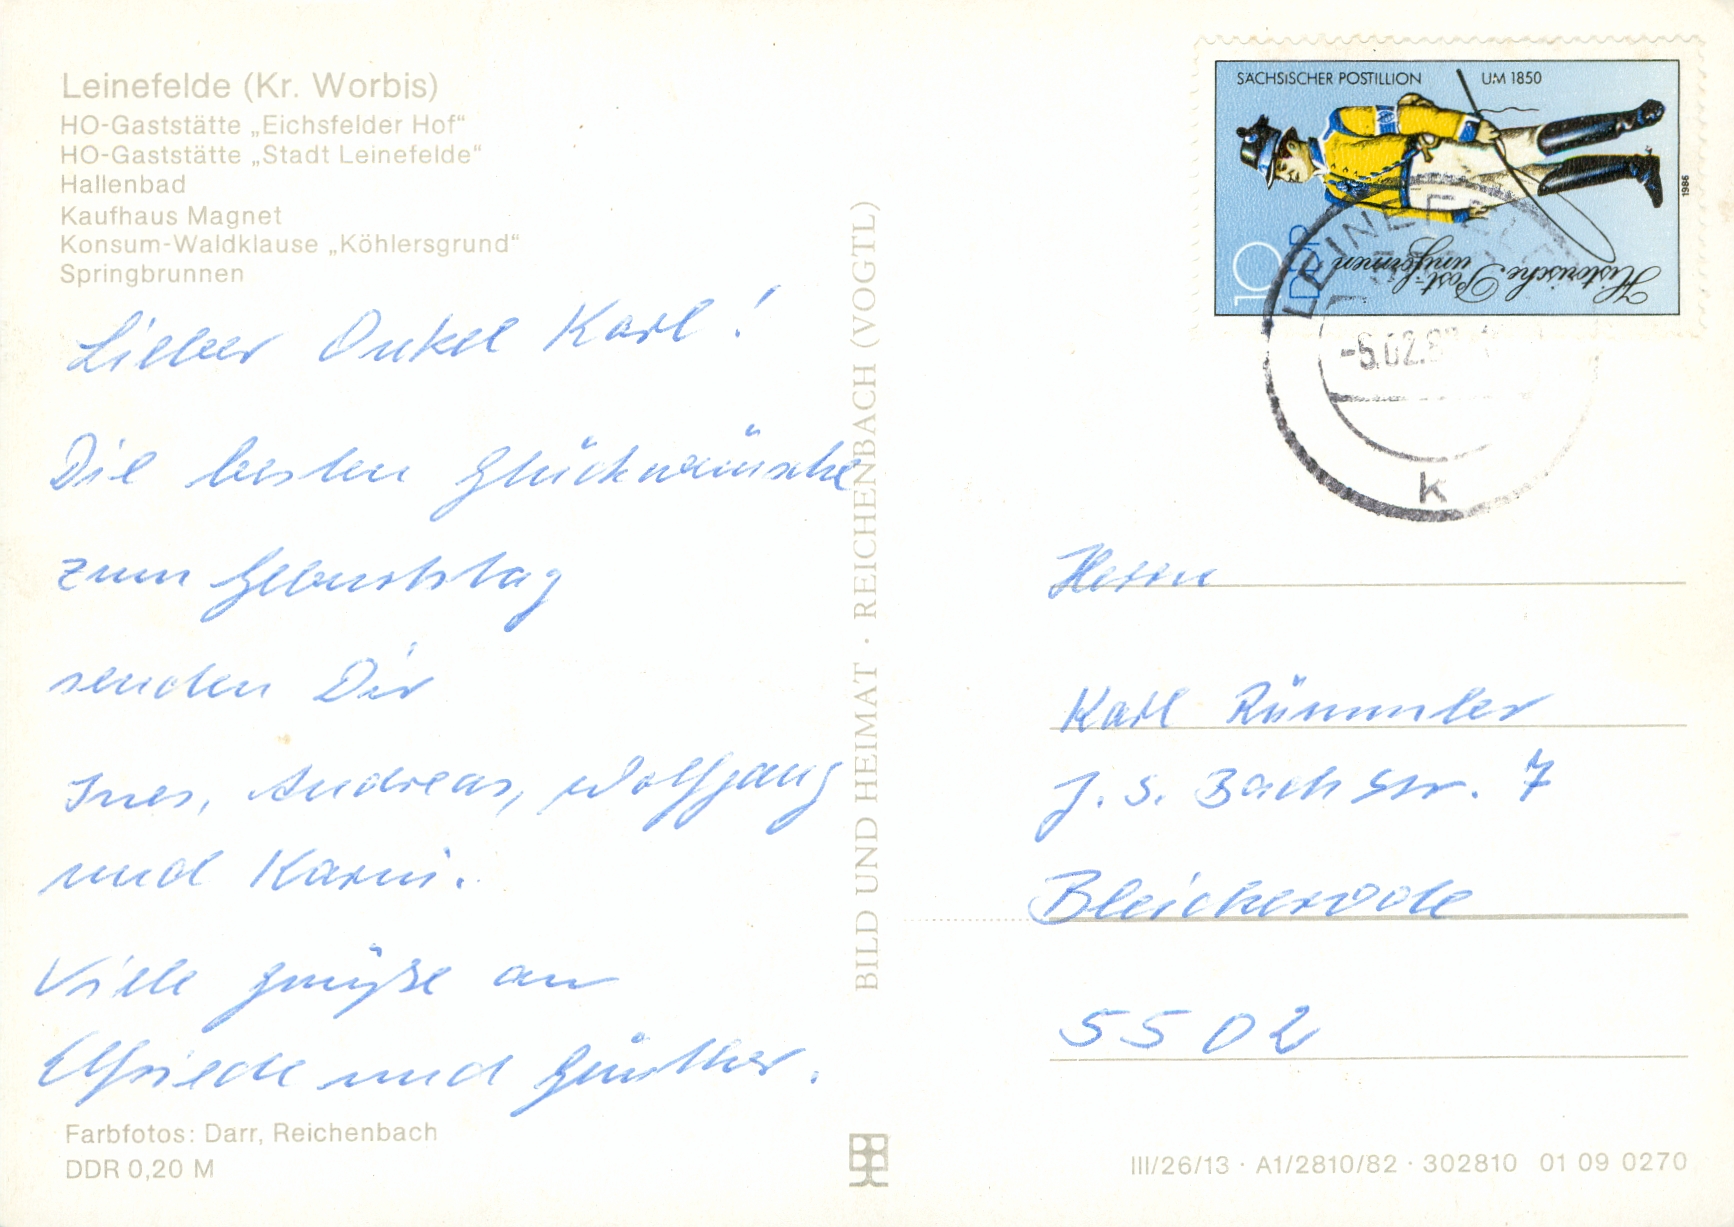 Leinefelde (Kr. Worbis)
HO-Gaststätte „Eichsfelder Hof“
HO-Gaststätte „Stadt Leinefelde“
Hallenbad
Kaufhaus Magnet
Konsum-Waldklause „Köhlersgrund“
Springbrunnen
Lieber Onkel Karl!
Die besten Glückwünsche
zum Geburtstag
senden Dir
Ines, Andreas, Wolfgang
und Karin.
Viele Grüße an
Elfriede und Günther.
Farbfotos: Darr, Reichenbach
DDR 0,20 M
BILD UND HEIMAT · REICHENBACH (VOGTL)
SÄCHSISCHER POSTILLION UM 1850
10
DDR
Historische Post-
uniformen
1986
LEINEFELDE
-5.02.8
k
Herrn
Karl Rümmler
J. S. Bach Str. 7
Bleicherode
5502
III/26/13 · A1/2810/82 · 302810 01 09 0270